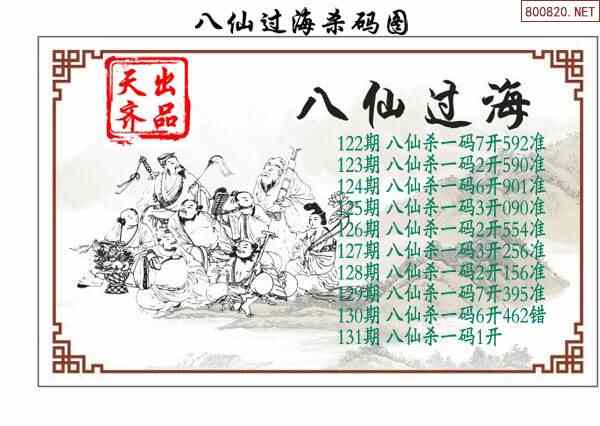 800820.NET
八仙过海杀码图
天齐出品
八仙过海
122期 八仙杀一码7开592准
123期 八仙杀一码2开590准
124期 八仙杀一码6开901准
125期 八仙杀一码3开090准
126期 八仙杀一码2开554准
127期 八仙杀一码3开256准
128期 八仙杀一码2开156准
129期 八仙杀一码7开395准
130期 八仙杀一码6开462错
131期 八仙杀一码1开